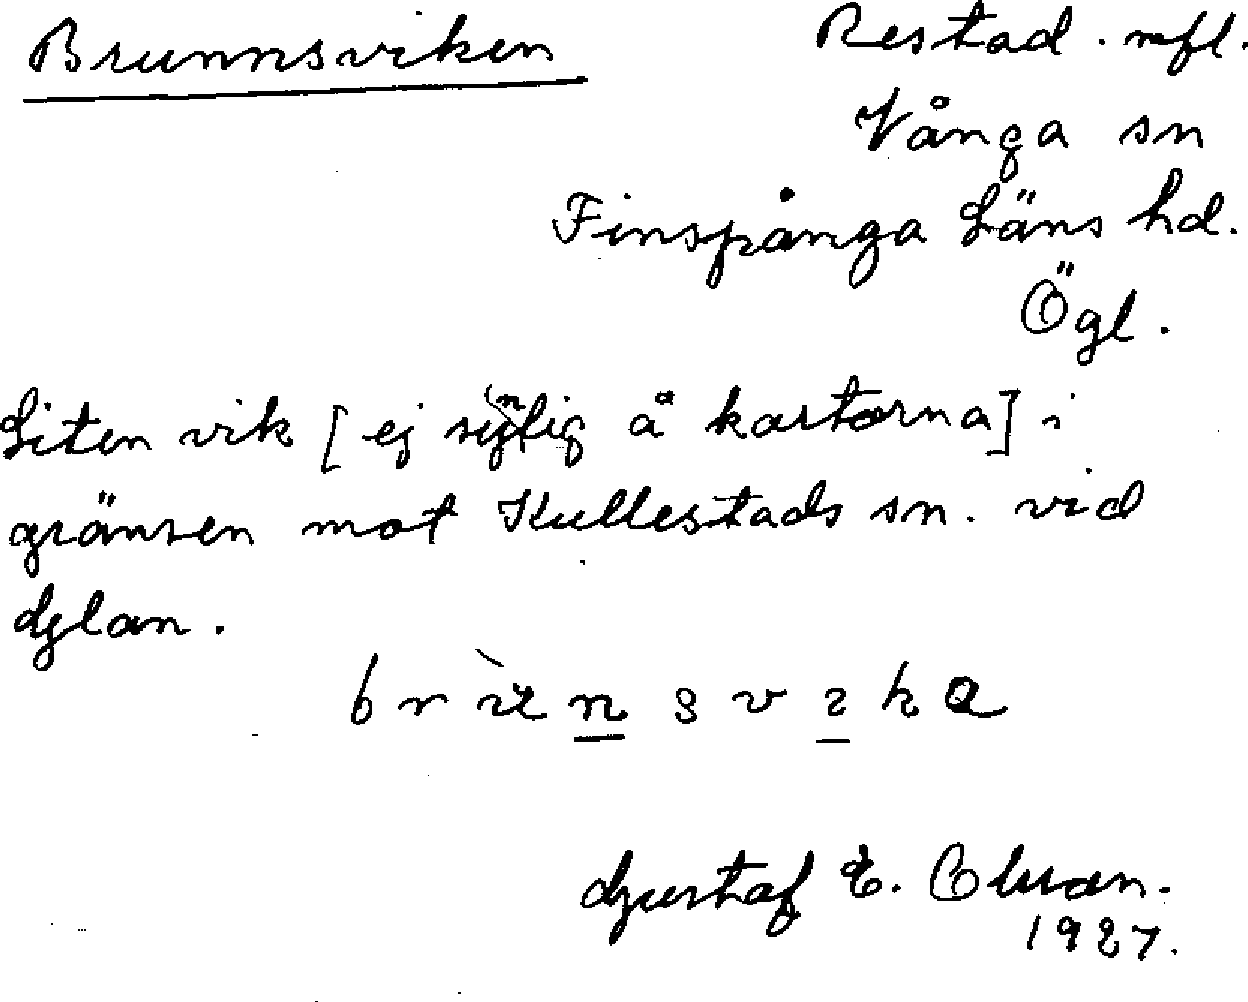 Brunnsviken
Restad. mfl.
Vånga sn
Finspånga Läns hd.
Ögl.
Liten vik [ej synlig å kartorna] i
gränsen mot Kullestads sn. vid
Glan.
Gustaf E. Olsson.
1927.